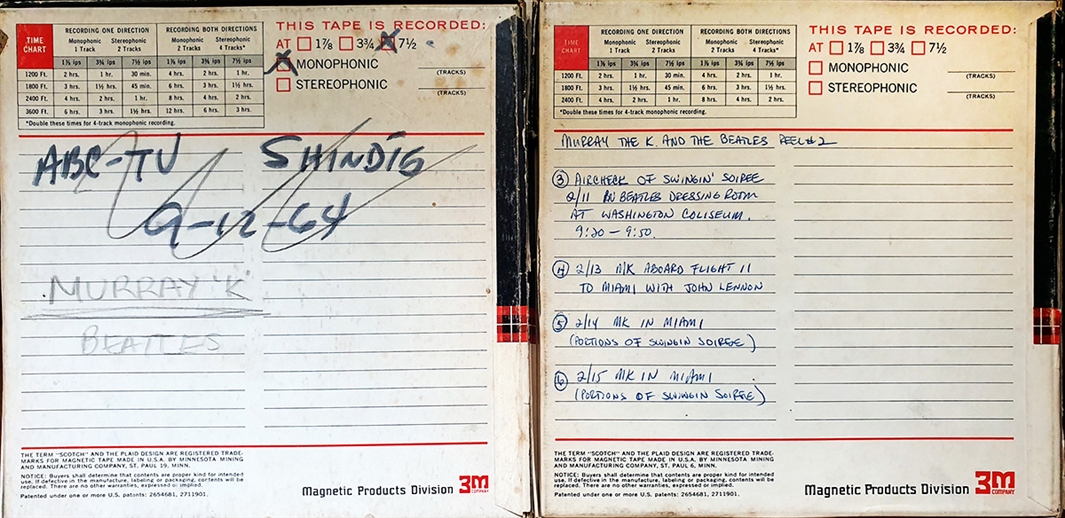 TIME CHART
RECORDING ONE DIRECTION
RECORDING BOTH DIRECTIONS
Monophonic 1 Track
Stereophonic 2 Tracks
Monophonic 2 Tracks
Stereophonic 4 Tracks*
1⅞ ips 3¾ ips 7½ ips 1⅞ ips 3¾ ips 7½ ips
1200 Ft. 2 hrs. 1 hr. 30 min. 4 hrs. 2 hrs. 1 hr.
1800 Ft. 3 hrs. 1½ hrs. 45 min. 6 hrs. 3 hrs. 1½ hrs.
2400 Ft. 4 hrs. 2 hrs. 1 hr. 8 hrs. 4 hrs. 2 hrs.
3600 Ft. 6 hrs. 3 hrs. 1½ hrs. 12 hrs. 6 hrs. 3 hrs.
*Double these times for 4-track monophonic recording.
THIS TAPE IS RECORDED:
AT 1⅞ 3¾ X 7½
X MONOPHONIC
(TRACKS)
STEREOPHONIC
(TRACKS)
ABC-TV SHINDIG
9-12-64
MURRAY 'K'
BEATLES
THE TERM "SCOTCH" AND THE PLAID DESIGN ARE REGISTERED TRADE-
MARKS FOR MAGNETIC TAPE MADE IN U.S.A. BY MINNESOTA MINING
AND MANUFACTURING COMPANY, ST. PAUL 19, MINN.
NOTICE: Buyers shall determine that contents are proper kind for intended
use. If defective in the manufacture, labeling or packaging, contents will be
replaced. There are no other warranties, expressed or implied.
Patented under one or more U.S. patents: 2654681, 2711901.
Magnetic Products Division 3M
COMPANY
TIME CHART
RECORDING ONE DIRECTION
RECORDING BOTH DIRECTIONS
Monophonic 1 Track
Stereophonic 2 Tracks
Monophonic 2 Tracks
Stereophonic 4 Tracks*
1⅞ ips 3¾ ips 7½ ips 1⅞ ips 3¾ ips 7½ ips
1200 Ft. 2 hrs. 1 hr. 30 min. 4 hrs. 2 hrs. 1 hr.
1800 Ft. 3 hrs. 1½ hrs. 45 min. 6 hrs. 3 hrs. 1½ hrs.
2400 Ft. 4 hrs. 2 hrs. 1 hr. 8 hrs. 4 hrs. 2 hrs.
*Double these times for 4-track monophonic recording.
THIS TAPE IS RECORDED:
AT 1⅞ 3¾ 7½
MONOPHONIC
(TRACKS)
STEREOPHONIC
(TRACKS)
MURRAY THE K. AND THE BEATLES REEL #2
③ AIRCHECK OF SWINGIN' SOIREE
2/11 IN BEATLES DRESSING ROOM
AT WASHINGTON COLISEUM.
9:20 – 9:50.
④ 2/13 M/K ABOARD FLIGHT 11
TO MIAMI WITH JOHN LENNON
⑤ 2/14 MK IN MIAMI
(PORTIONS OF SWINGIN SOIREE)
⑥ 2/15 MK IN MIAMI
(PORTIONS OF SWINGIN SOIREE)
THE TERM "SCOTCH" AND THE PLAID DESIGN ARE REGISTERED TRADE-
MARKS FOR MAGNETIC TAPE MADE IN U.S.A. BY MINNESOTA MINING
AND MANUFACTURING COMPANY, ST. PAUL 6, MINN.
NOTICE: Buyers shall determine that contents are proper kind for intended
use. If defective in the manufacture, labeling or packaging, contents will be
replaced. There are no other warranties, expressed or implied.
Patented under one or more U.S. patents: 2654681, 2711901.
Magnetic Products Division 3M
COMPANY